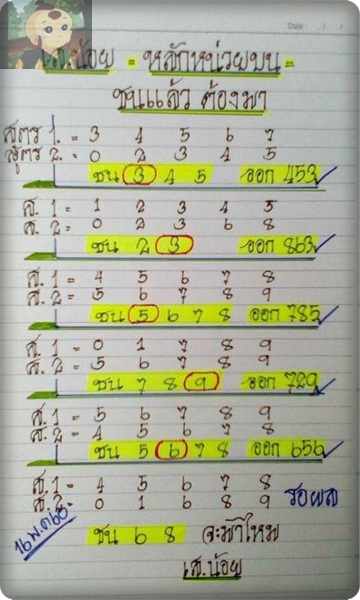 Date : / /
เส.น้อย = หลักหน่วยบน =
ชนแล้ว ต้องมา
สูตร 1. = 3 4 5 6 7
สูตร 2. = 0 2 3 4 5
ชน 3 4 5 ออก 453
ส. 1 = 1 2 3 4 5
ส. 2 = 0 2 3 6 8
ชน 2 3 ออก 863
ส. 1 = 4 5 6 7 8
ส. 2 = 5 6 7 8 9
ชน 5 6 7 8 ออก 785
ส. 1 = 0 1 7 8 9
ส. 2 = 5 6 7 8 9
ชน 7 8 9 ออก 729
ส. 1 = 5 6 7 8 9
ส. 2 = 4 5 6 7 8
ชน 5 6 7 8 ออก 656
ส. 1 = 4 5 6 7 8
ส. 2 = 0 1 6 8 9 รอผล
16 พ.ค 60
ชน 6 8 จะมาไหม
เส.น้อย